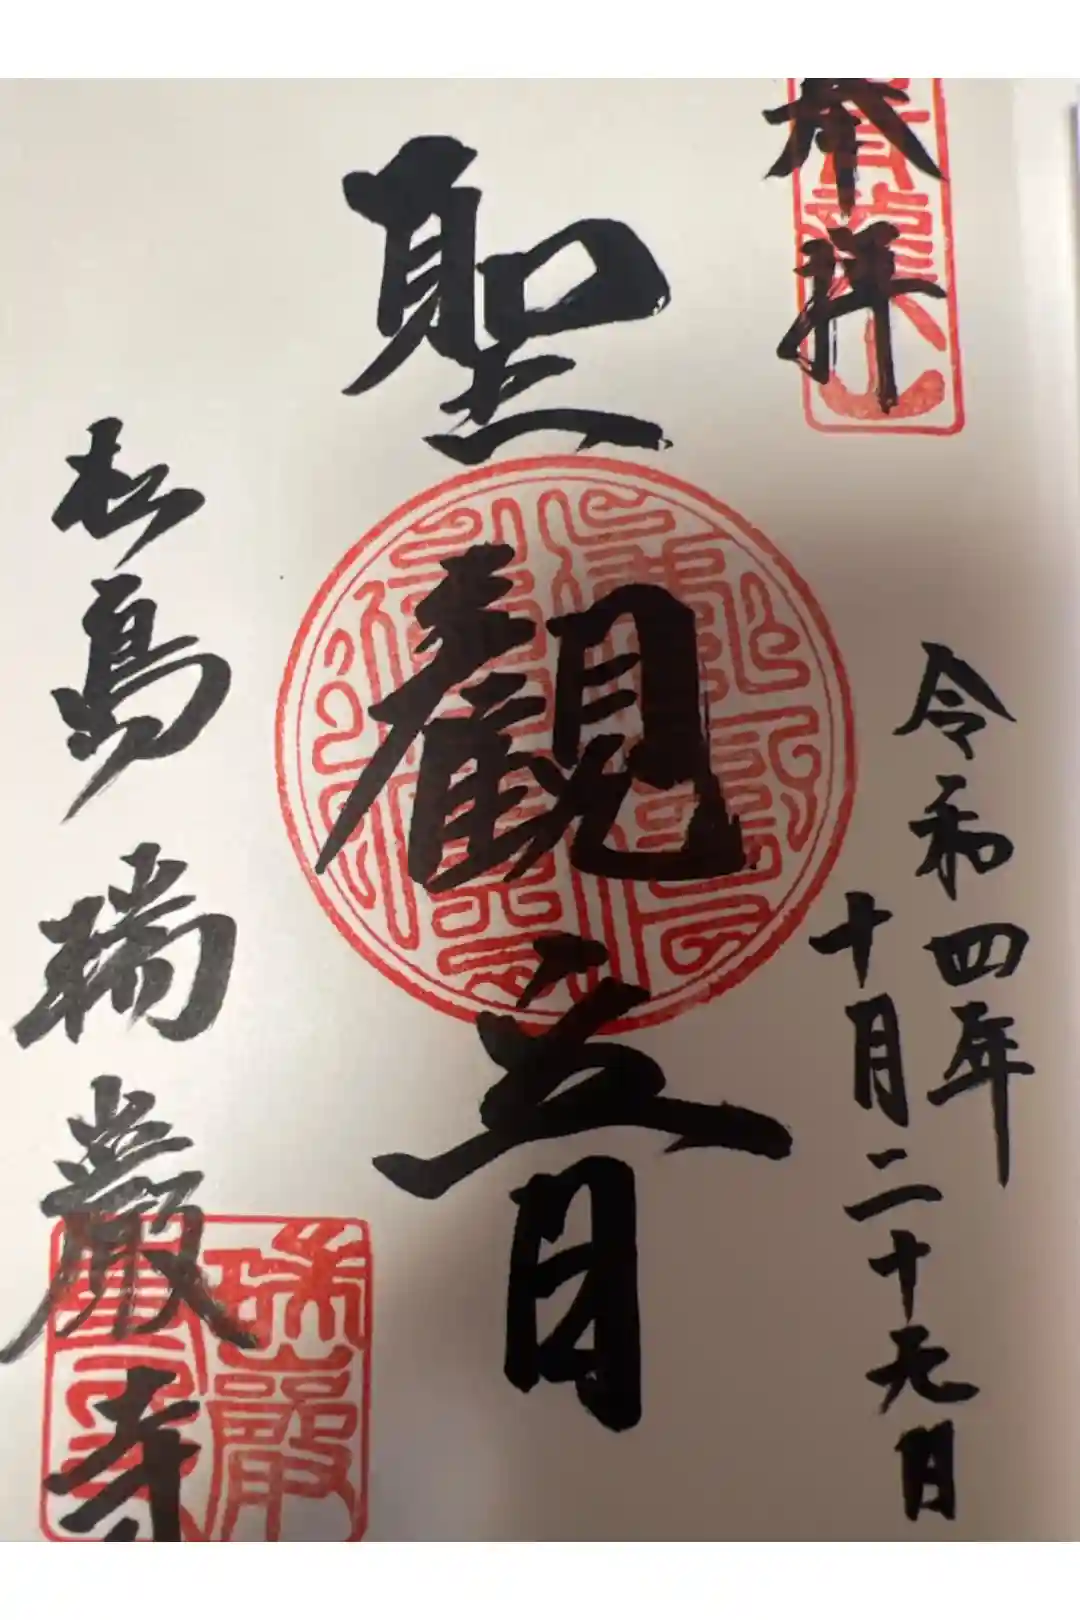 奉拝
令和四年
十月二十九日
聖觀音
松島瑞巌寺
瑞巖